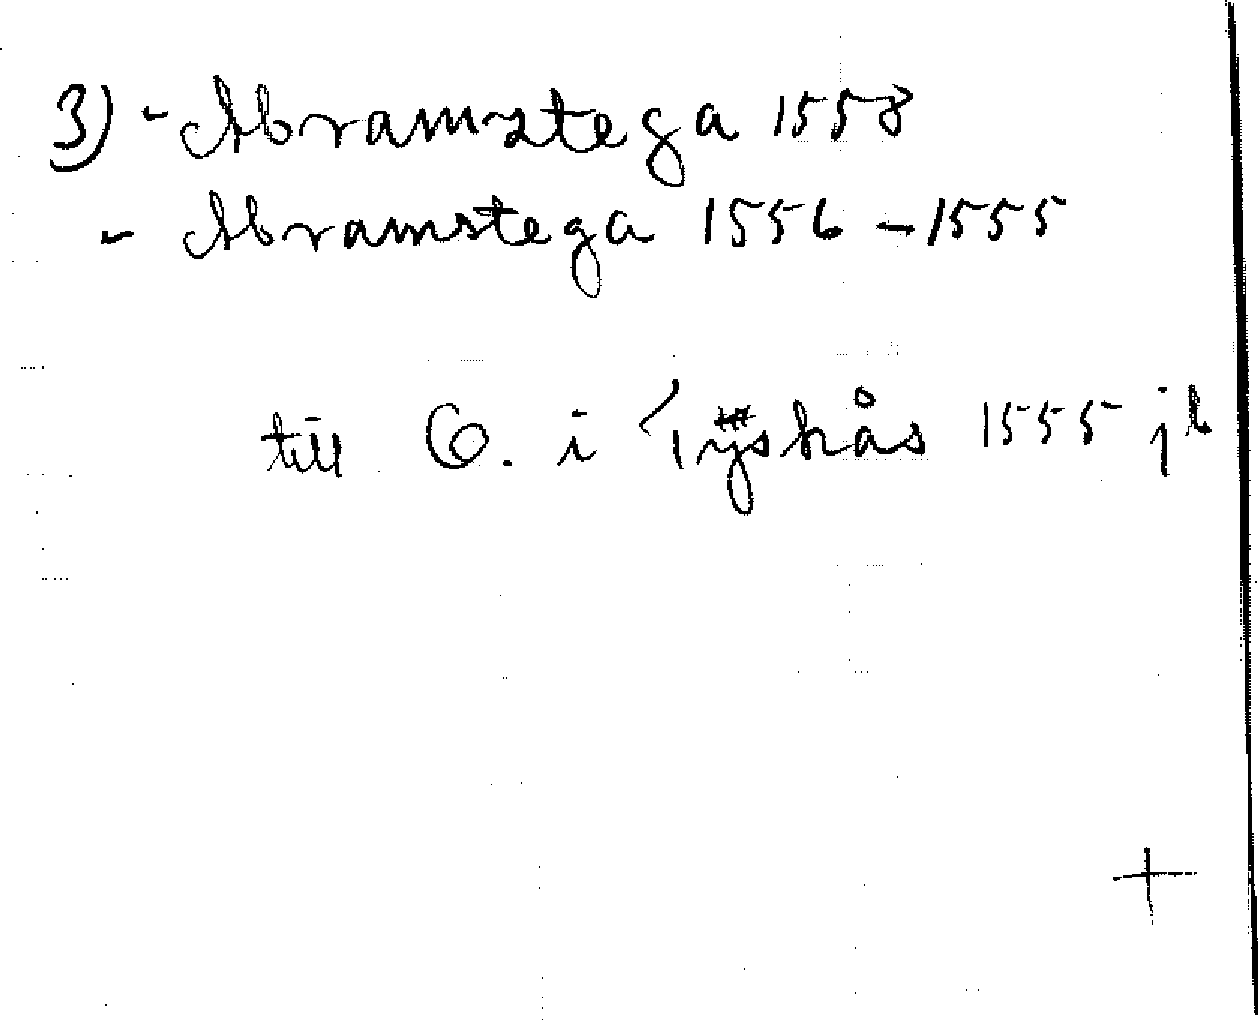 3) - Abramstega 1558
- Abramstega 1556 - 1555
till Ö. i Tÿskås 1555 jb
+